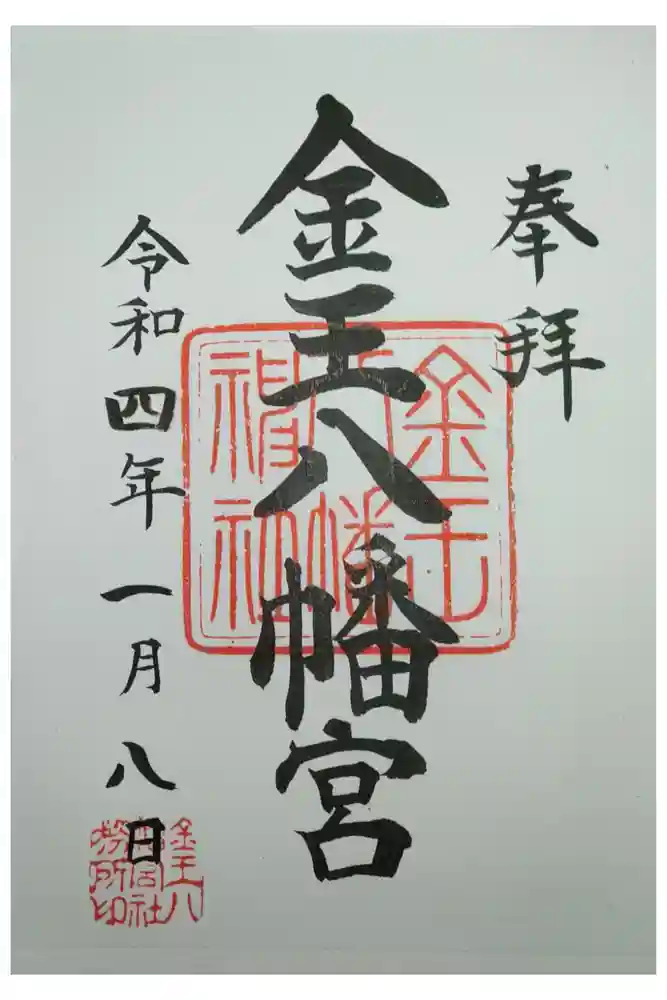 奉拝
金王八幡宮
金王
八幡
神社
令和四年一月八日
金王八
幡宮社
務所印